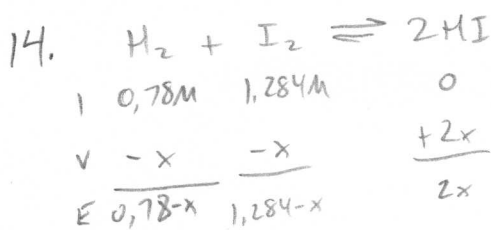 14. H₂ + I₂ ⇌ 2HI
I 0,78M 1,284M 0
V -x -x +2x
E 0,78-x 1,284-x 2x